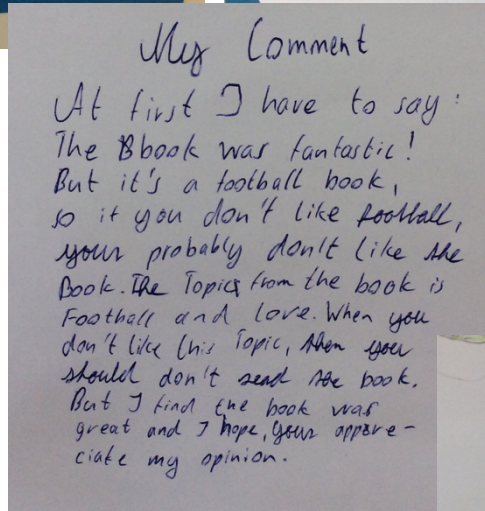 My Comment
At first I have to say:
The Bbook was fantastic!
But it's a football book,
so if you don't like football,
your probably don't like the
Book. The Topics from the book is
Football and love. When you
don't like this Topic, then you
should don't read the book.
But I find the book was
great and I hope, your appre-
ciate my opinion.